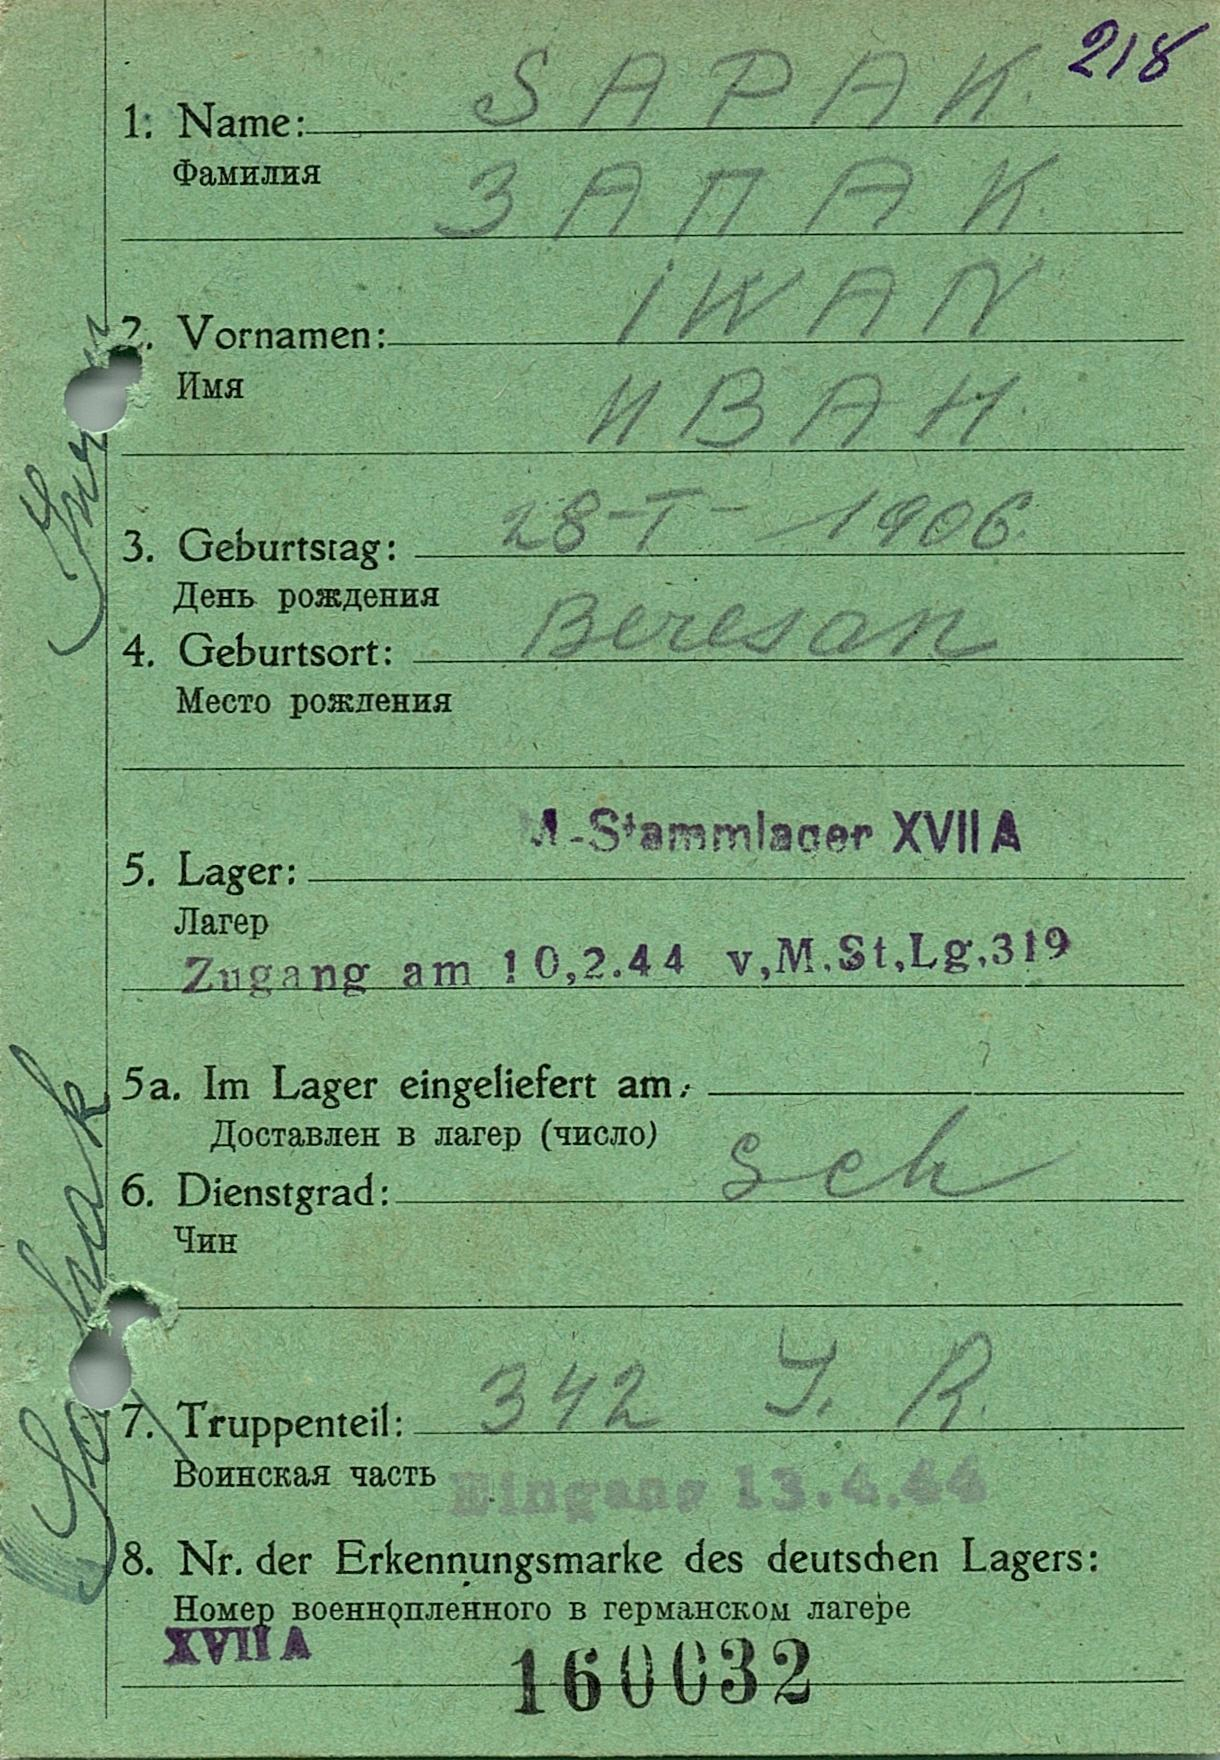 218
1. Name: SAPAK.
Фамилия ЗАПАК.
2. Vornamen: IWAN
Имя ИВАН.
3. Geburtstag: 28-I- 1906.
День рождения
4. Geburtsort: Beresan
Место рождения
M-Stammlager XVII A
5. Lager:
Лагер
Zugang am 10,2.44 v,M.St,Lg.319
5a. Im Lager eingeliefert am:
Доставлен в лагер (число)
6. Dienstgrad: Sch
Чин
7. Truppenteil: 342 J. R.
Воинская часть Eingang 13.4.44
8. Nr. der Erkennungsmarke des deutschen Lagers:
Номер военнопленного в германском лагере
XVII A
160032